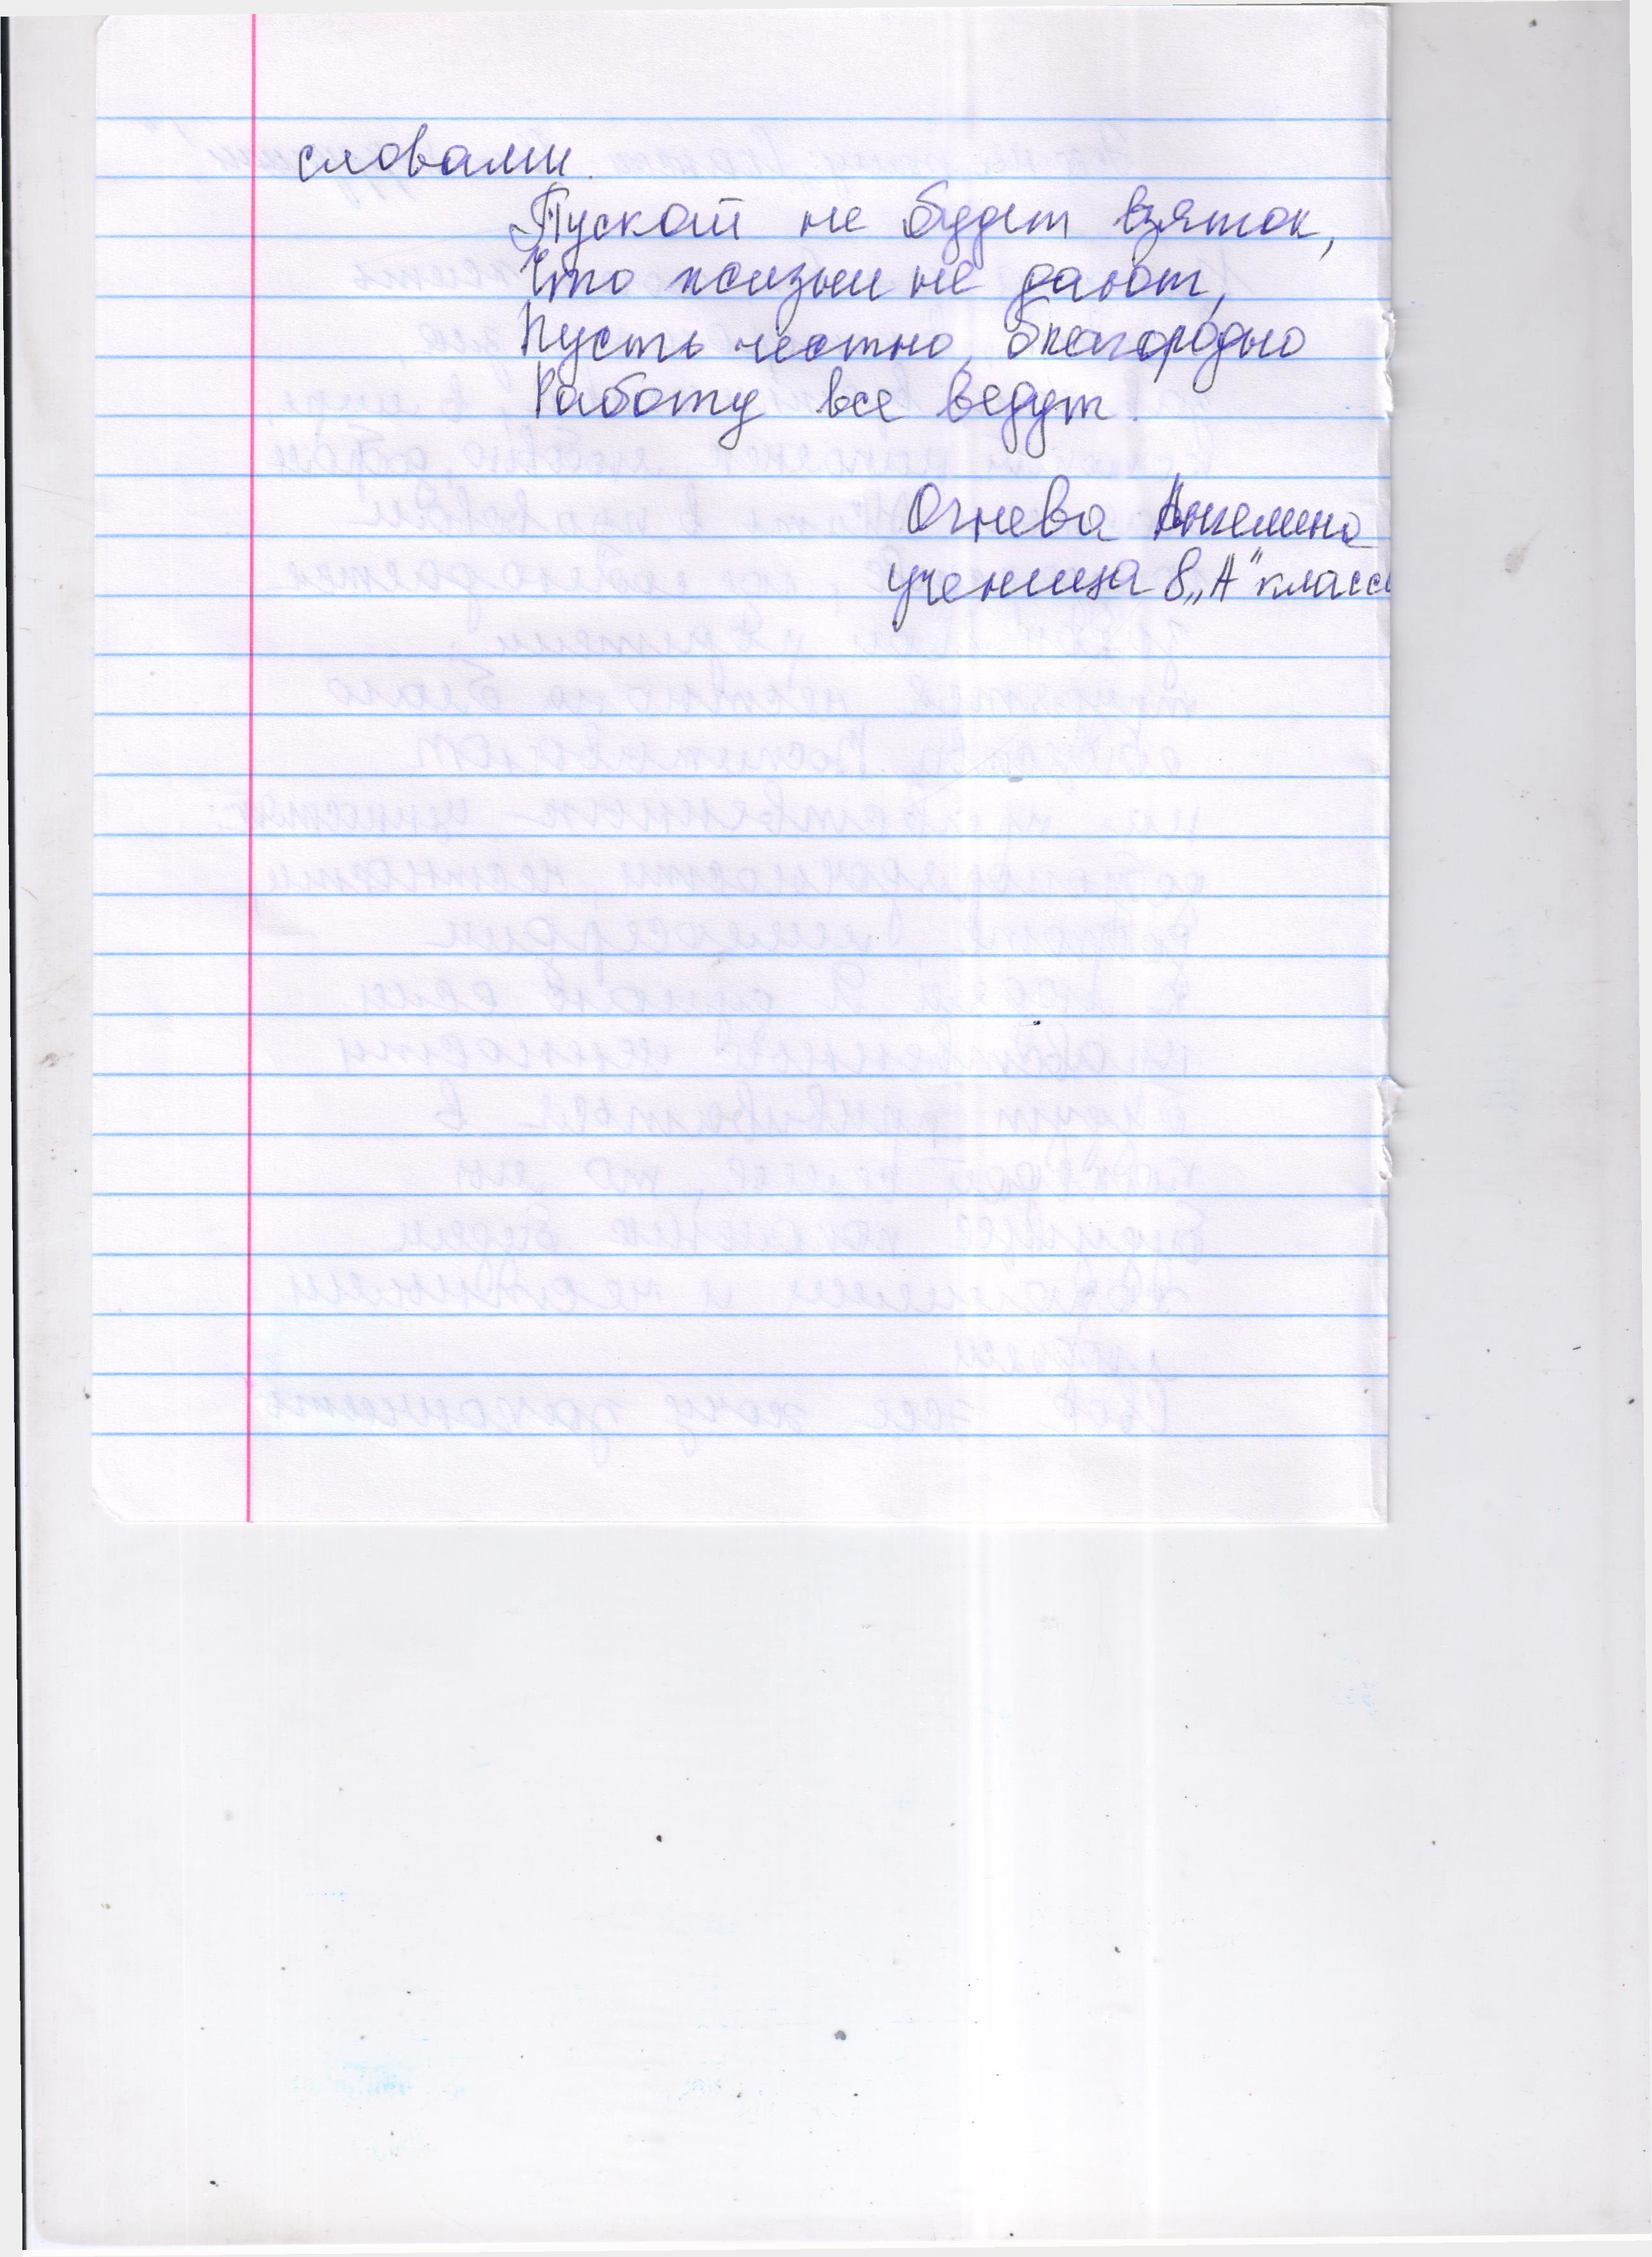 словами.
Пускай не будет взяток,
Что жизни не дают,
Пусть честно, благородно
Работу все ведут.
Огнева Ангелина
ученица 8 „А" класса